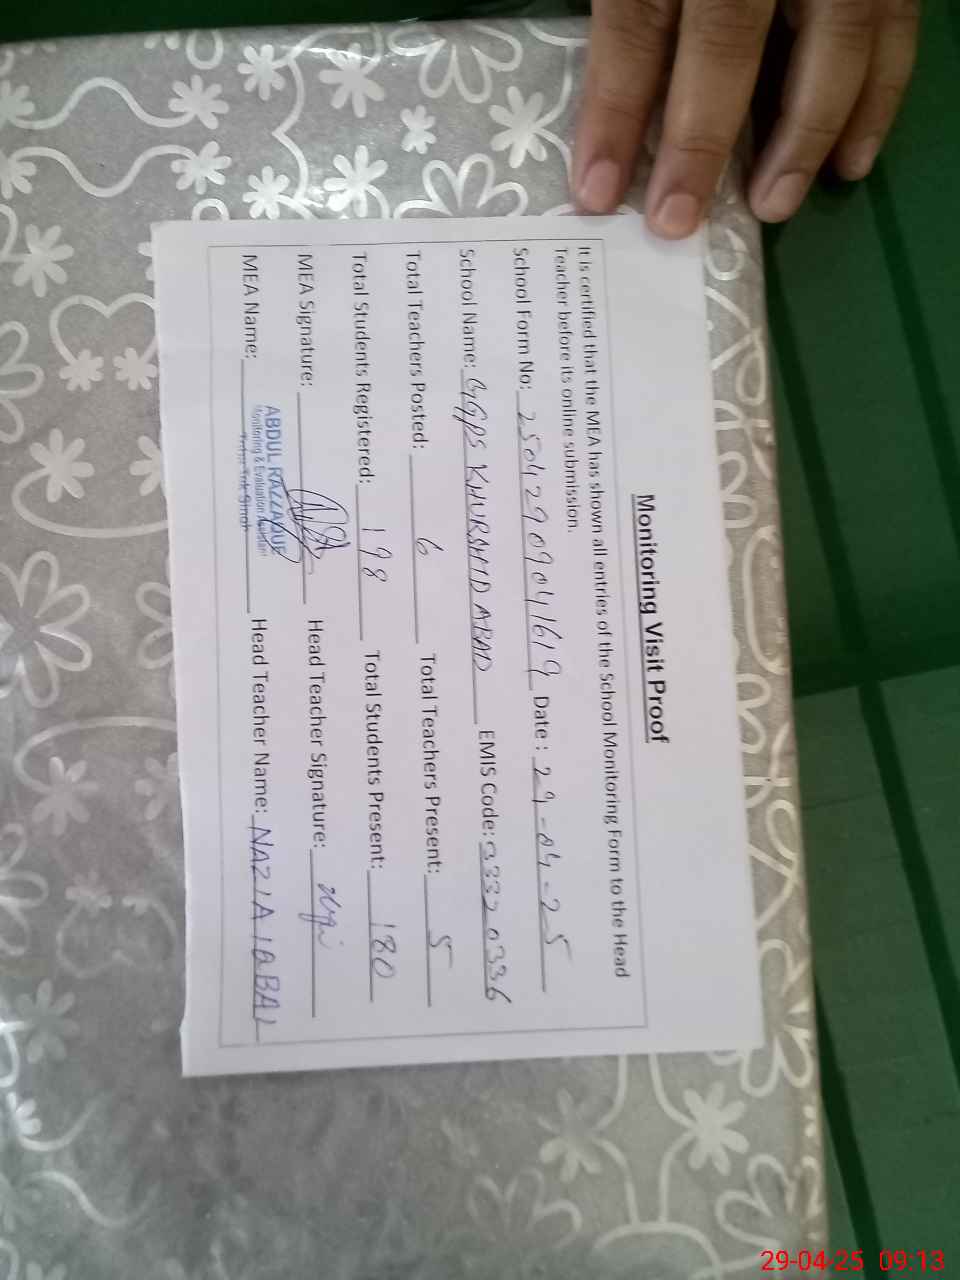 Monitoring Visit Proof
It is certified that the MEA has shown all entries of the School Monitoring Form to the Head
Teacher before its online submission.
School Form No: 25042909041619 Date : 29-04-25
School Name: GGPS KHURSHID ABAD EMIS Code: 33320336
Total Teachers Posted: 6 Total Teachers Present: 5
Total Students Registered: 198 Total Students Present: 180
MEA Signature: Head Teacher Signature:
MEA Name: ABDUL RAZZAQUE Head Teacher Name: NAZIA IQBAL
Monitoring & Evaluation Assistant
29-04-25 09:13